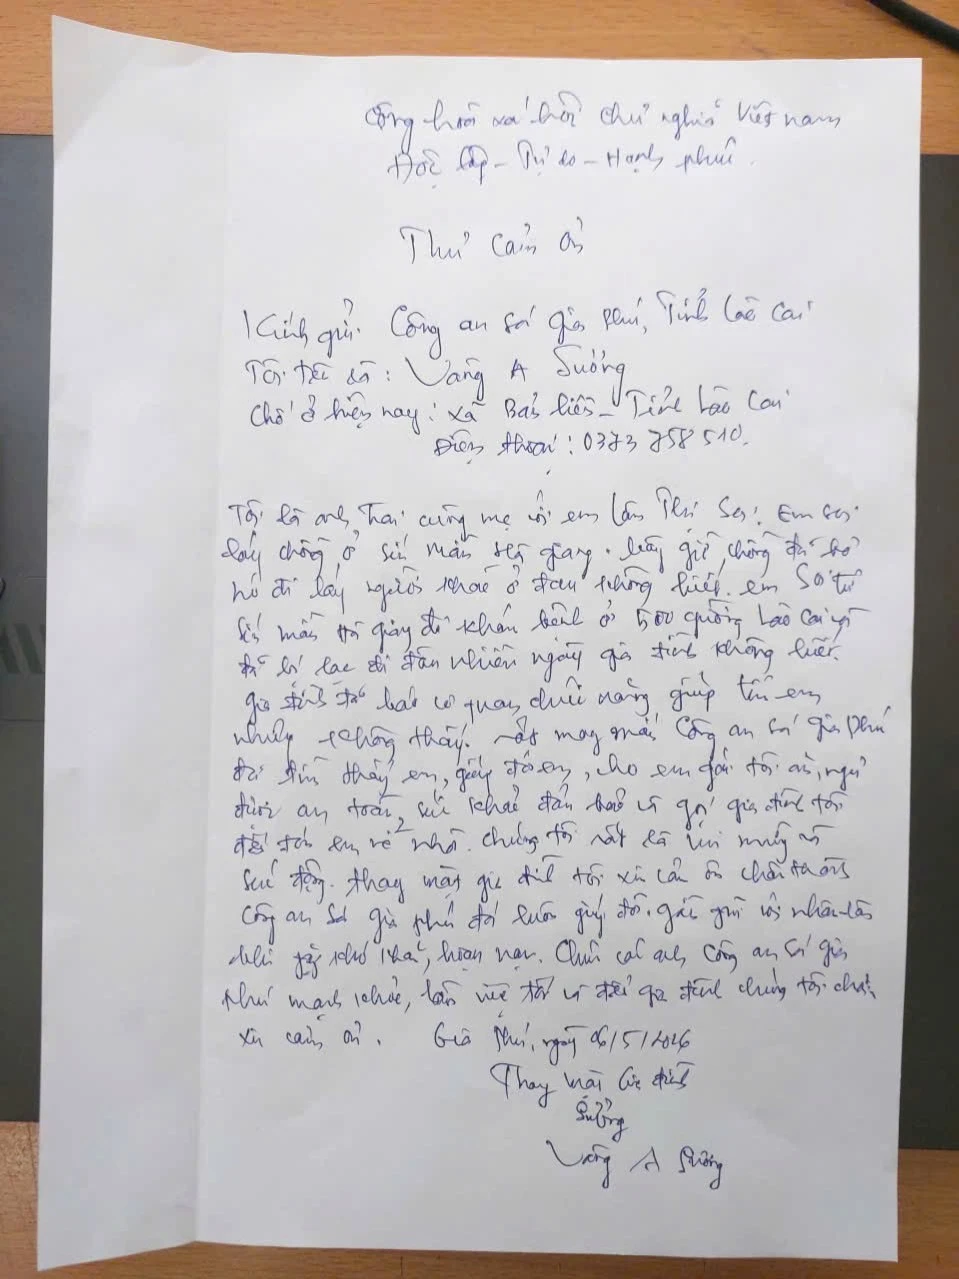 Cộng hòa xã hội chủ nghĩa Việt nam
Độc lập - Tự do - Hạnh phúc.
Thư cảm ơn
Kính gửi: Công an xã Gia Phú, Tỉnh Lào Cai
Tôi tên là: Vàng A Sưởng
Chỗ ở hiện nay: xã Bản liền - Tỉnh Lào Cai
Điện thoại: 0373 758 510.
Tôi là anh trai cùng mẹ với em Lâm Thị Sơi. Em Sơi
lấy chồng ở Sín Mần Hà Giang. bây giờ chồng đã bỏ
nó đi lấy người khác ở đâu không biết. em Sơi từ
Sín mần Hà giang đi khám bệnh ở 500 giường Lào Cai
đã bị lạc đi đâu nhiều ngày gia đình không biết.
gia đình đã báo cơ quan chức năng giúp tìm em
nhưng không thấy. rất may mắn Công an xã Gia phú
đã tìm thấy em, giúp đỡ em, cho em gái tôi ăn, ngủ
được an toàn, sức khỏe đảm bảo và gọi gia đình tôi
đến đón em về nhà. chúng tôi rất là vui mừng và
xúc động. thay mặt gia đình tôi xin cảm ơn chân thành
Công an xã Gia phú đã luôn giúp đỡ. gần gũi với nhân dân
khi gặp khó khăn, hoạn nạn. Chúc các anh Công an xã Gia
Phú mạnh khỏe, làm việc tốt và gia đình chúng tôi
xin cảm ơn. Gia Phú, ngày 06/5/2026
Thay mặt Gia đình
Sưởng
Vàng A Sưởng